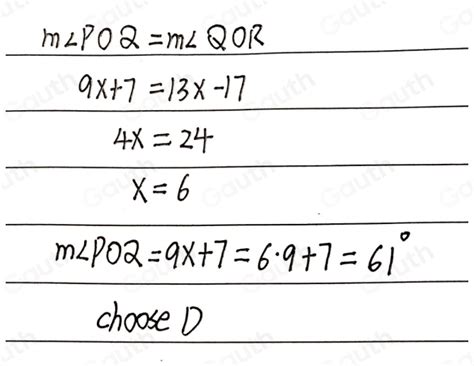 m∠POQ = m∠QOR
9x+7 = 13x-17
4x = 24
x = 6
m∠POQ = 9x+7 = 6·9+7 = 61°
choose D